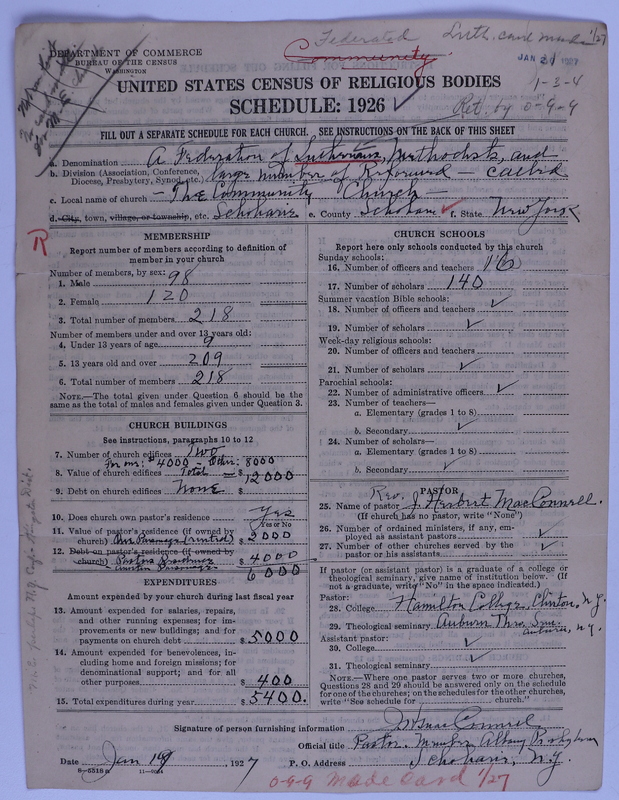 Federated Luth. card made 1/27
Community
DEPARTMENT OF COMMERCE
BUREAU OF THE CENSUS
WASHINGTON
JAN 21 1927
1-3-4
UNITED STATES CENSUS OF RELIGIOUS BODIES
SCHEDULE: 1926
Ret. by 0-9-9
FILL OUT A SEPARATE SCHEDULE FOR EACH CHURCH. SEE INSTRUCTIONS ON THE BACK OF THIS SHEET
a. Denomination A Federation of Lutherans, Methodists, and
b. Division (Association, Conference, Diocese, Presbytery, Synod, etc.) large number of Reformed — called
c. Local name of church - The Community Church -
d. City, town, village, or township, etc. Schoharie e. County Schoharie f. State New York
R
MEMBERSHIP
Report number of members according to definition of
member in your church
Number of members, by sex:
1. Male 98
2. Female 120
3. Total number of members 218
Number of members under and over 13 years old:
4. Under 13 years of age 9
5. 13 years old and over 209
6. Total number of members 218
NOTE.—The total given under Question 6 should be the
same as the total of males and females given under Question 3.
CHURCH BUILDINGS
See instructions, paragraphs 10 to 12
7. Number of church edifices Two
For one: $4000 - Other: 8000
8. Value of church edifices Total — $ 12000
9. Debt on church edifices None $
10. Does church own pastor's residence yes
Yes or No
11. Value of pastor's residence (if owned by
church) One Parsonage (rented) $ 2000
12. Debt on pastor's residence (if owned by
church) Pastors Residence $ 4000
6000
EXPENDITURES
Amount expended by your church during last fiscal year
13. Amount expended for salaries, repairs,
and other running expenses; for im-
provements or new buildings; and for
payments on church debt $ 5000
14. Amount expended for benevolences, in-
cluding home and foreign missions; for
denominational support; and for all
other purposes $ 400
15. Total expenditures during year $ 5400.
CHURCH SCHOOLS
Report here only schools conducted by this church
Sunday schools:
16. Number of officers and teachers 16
17. Number of scholars 140
Summer vacation Bible schools:
18. Number of officers and teachers
19. Number of scholars
Week-day religious schools:
20. Number of officers and teachers
21. Number of scholars
Parochial schools:
22. Number of administrative officers
23. Number of teachers—
a. Elementary (grades 1 to 8)
b. Secondary
24. Number of scholars—
a. Elementary (grades 1 to 8)
b. Secondary
PASTOR
25. Name of pastor Rev. J. Herbert MacConnell.
(If church has no pastor, write "None")
26. Number of ordained ministers, if any, em-
ployed as assistant pastors
27. Number of other churches served by the
pastor or his assistants
If pastor (or assistant pastor) is a graduate of a college or
theological seminary, give name of institution below. (If
not a graduate, write "No" in the space indicated.)
Pastor:
28. College Hamilton College, Clinton, N.Y.
29. Theological seminary Auburn Theo. Sem.
Auburn, N.Y.
Assistant pastor:
30. College
31. Theological seminary
NOTE.—Where one pastor serves two or more churches,
Questions 28 and 29 should be answered only on the schedule
for one of the churches; on the schedules for the other churches,
write "See schedule for church."
Signature of person furnishing information
Official title Pastor. Member Albany Presbytery
Date Jan 19, 1927 P. O. Address Schoharie, N.Y.
8-5518 a 11-9054
0-9-9 Made Card 1/27